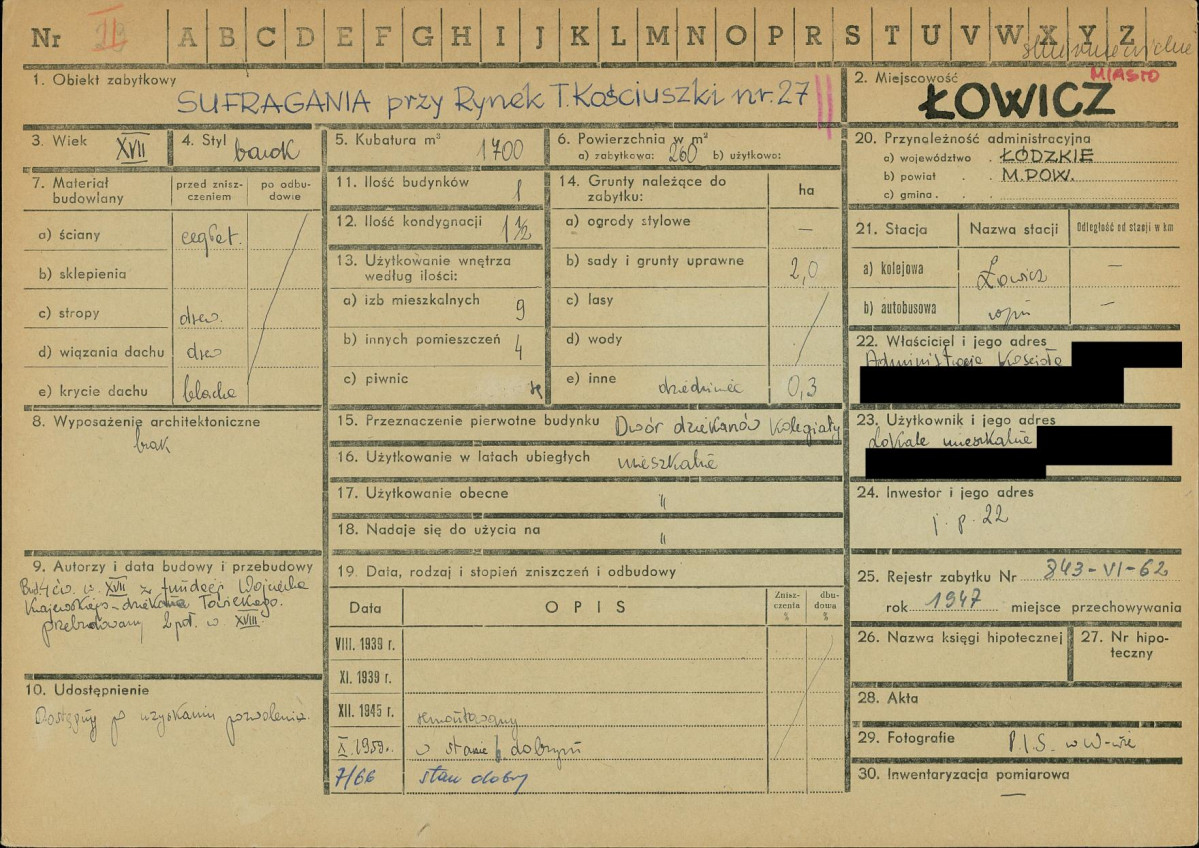 Nr II A B C D E F G H I J K L M N O P R S T U V W X Y Z
1. Obiekt zabytkowy
SUFRAGANIA przy Rynek T. Kościuszki nr. 27
2. Miejscowość MIASTO
ŁOWICZ
3. Wiek XVII
4. Styl barok
5. Kubatura m³ 1700
6. Powierzchnia w m²
a) zabytkowa: 260 b) użytkowo:
7. Materiał budowiany
przed znisz-czeniem
po odbu-dowie
a) ściany
b) sklepienia
c) stropy drew.
d) wiązania dachu drew
e) krycie dachu blacha
8. Wyposażenie architektoniczne
brak
9. Autorzy i data budowy i przebudowy
w. XVII z fundacji Wojciecha
Krajewskiego - dziekana
przebudowany 2 poł. w. XVIII.
10. Udostępnienie
Dostępny po uzyskaniu pozwolenia.
11. Ilość budynków 1
12. Ilość kondygnacji 1½
13. Użytkowanie wnętrza
według ilości:
a) izb mieszkalnych 9
b) innych pomieszczeń 4
c) piwnic są
14. Grunty należące do
zabytku:
ha
a) ogrody stylowe —
b) sady i grunty uprawne 2,0
c) lasy
d) wody
e) inne dziedziniec 0,3
15. Przeznaczenie pierwotne budynku Dwór dziekanów Kolegiaty
16. Użytkowanie w latach ubiegłych mieszkalne
17. Użytkowanie obecne "
18. Nadaje się do użycia na "
19. Data, rodzaj i stopień zniszczeń i odbudowy
Data
OPIS
Zniszczenia %
dbudowa %
VIII. 1939 r.
XI. 1939 r.
XII. 1945 r. remontowany
X. 1959r. w stanie dobrym
7/66 stan dobry
20. Przynależność administracyjna
a) województwo . ŁÓDZKIE
b) powiat . . M. POW.
c) gmina . .
21. Stacja
Nazwa stacji
Odległość od stacji w km
a) kolejowa Łowicz —
b) autobusowa —
22. Właściciel i jego adres
Administracja Kościoła
23. Użytkownik i jego adres
Lokale mieszkalne
24. Inwestor i jego adres
j. p. 22
25. Rejestr zabytku Nr 843-VI-62
rok 1947 miejsce przechowywania
26. Nazwa księgi hipotecznej
27. Nr hipo-
teczny
28. Akta
29. Fotografie P.I.S. w W-wie
30. Inwentaryzacja pomiarowa
—